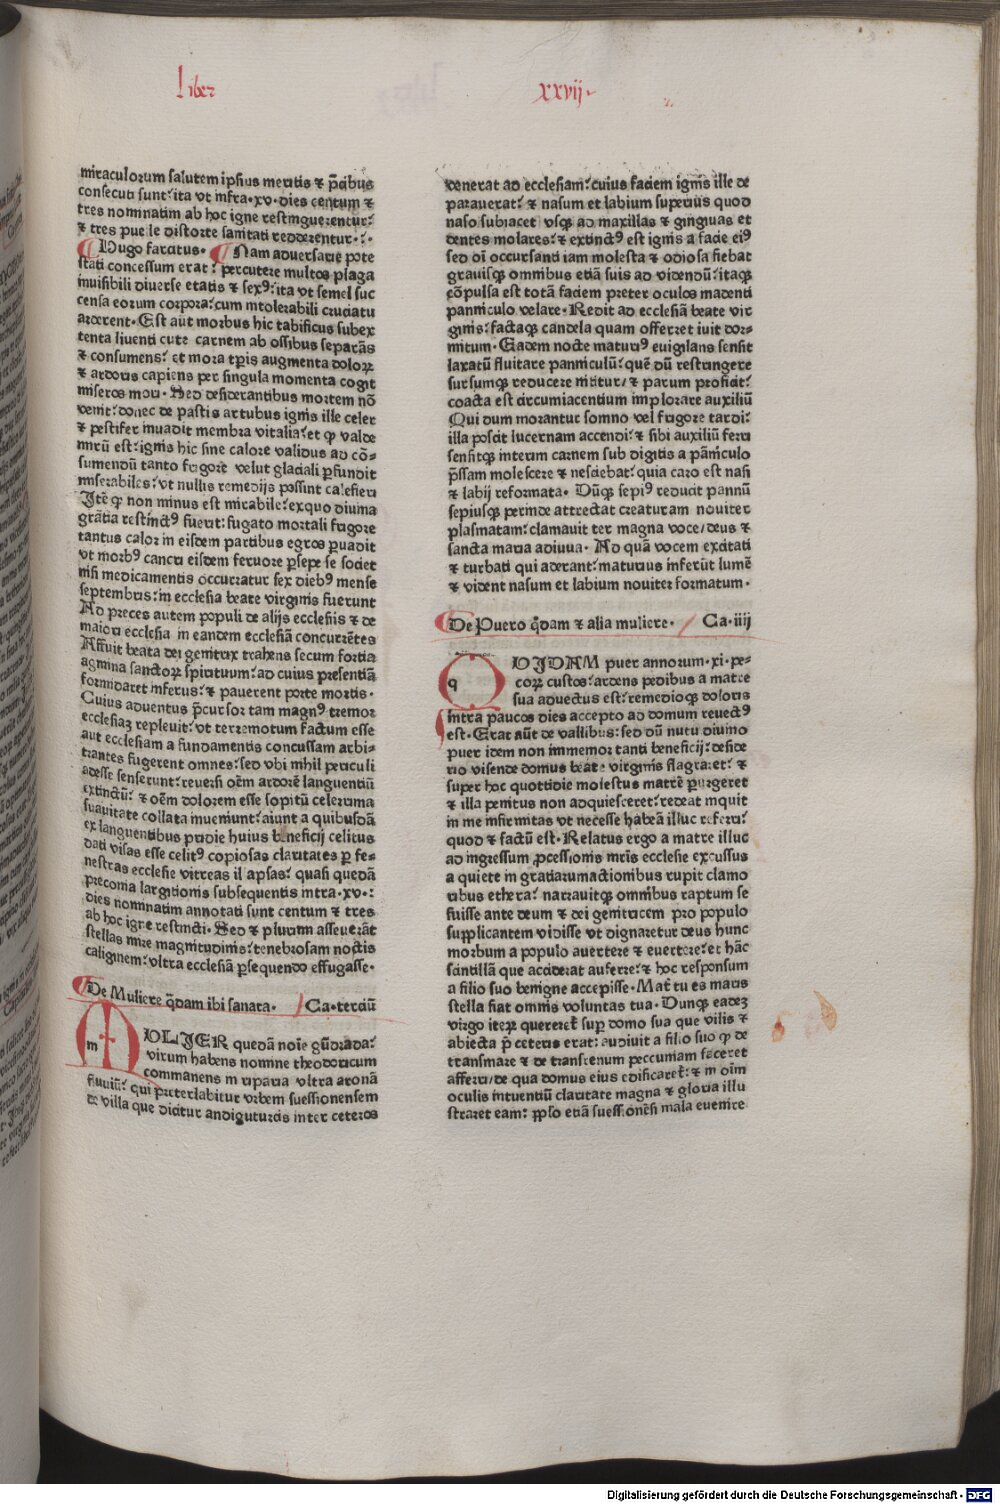 Liber xxvij
miraculorum salutem ipsius meritis ⁊ p̄cibus
consecuti sunt: ita vt infra·xv·dies centum ⁊
tres nominatim ab hoc igne restinguerentur:
⁊ tres puelle distorte sanitati redderentur·:·
Hugo farcitus· Nam aduersarie pote
stati concessum erat: percutere multos plaga
inuisibili diuerse etatis ⁊ sexꝰ: ita vt semel suc
censa eorum corpora: cum intolerabili cruciatu
arderent· Est aut morbus hic tabificus subex
tenta liuenti cute carnem ab ossibus separās
⁊ consumens: et mora tp̄is augmenta dolorꝝ
⁊ ardoris capiens per singula momenta cogit
miseros mori· Sed desiderantibus mortem nō
venit: donec de pastis artubus ignis ille celer
⁊ pestifer inuadit membra vitalia: et ꝙ valde
mirū est: ignis hic sine calore validus ad cō-
sumendū tanto frigore velut glaciali ꝑfundit
miserabiles: vt nullis remedijs possint calefieri
Itē ꝙ non minus est mirabile: exquo diuina
gratia restinctꝰ fuerit: fugato mortali frigore
tantus calor in eisdem partibus egros ꝑuadit
vt morbꝰ cancri eisdem feruore ꝑsepe se societ
nisi medicamentis occurratur sex diebꝰ mense
septembris: in ecclesia beate virginis fuerunt
Ad preces autem populi de alijs ecclesiis ⁊ de
maiori ecclesia in eandem ecclesiā concurrētes
Affuit beata dei genitrix trahens secum fortia
agmina sanctorꝝ spirituum: ad cuius presentiā
formidaret inferus: ⁊ pauerent porte mortis·
Cuius aduentus p̄cursor tam magnꝰ tremor
ecclesiaꝫ repleuit: vt terremotum factum esse
aut ecclesiam a fundamentis concussam arbi-
trantes fugerent omnes: sed vbi nihil periculi
adesse senserunt: reuersi oēm ardorē languentiū
extinctū: ⁊ oēm dolorem esse sopitū celerrima
suauitate collata inueniunt: aiunt a quibusdā
ex languentibus pridie huius beneficij celitus
dati visas esse celitꝰ copiosas claritates ꝑ fe-
nestras ecclesie vitreas illapsas: quasi quedā
preconia largitionis subsequentis intra·xv·:
dies nominatim annotati sunt centum ⁊ tres
ab hoc igne restincti· Sed ⁊ plurim asseuerāt
stellas mire magnitudinis: tenebrosam noctis
caliginem: vltra ecclesiā ꝑsequendo effugasse·
De Muliere q̄dam ibi sanata· Ca·terciū
MVLIER quedā noīe gūdrada:
virum habens nomine theodoricum
commanens in riparia vltra axonā
fluuiū: qui preterlabitur vrbem suessionensem
de villa que dicitur andiguturris inter ceteros
venerat ad ecclesiam: cuius faciem ignis ille de
parauerat: ⁊ nasum et labium superius quod
naso subiacet vsqꝫ ad maxillas ⁊ gingiuas et
dentes molares: ⁊ extinctꝰ est ignis a facie eiꝰ
sed oī occursanti iam molesta ⁊ odiosa fiebat
grauisqꝫ omnibus etiā suis ad videndū: itaqꝫ
cōpulsa est totā faciem preter oculos madenti
panniculo velare· Redit ad ecclesiā beate vir
ginis: factaqꝫ candela quam offerret iuit dor-
mitum· Eadem nocte maturiꝰ euigilans sensit
laxatū fluitare panniculū: quē dū restringere
sursumqꝫ reducere nititur/ ⁊ parum proficit:
coacta est circumiacentium implorare auxiliū
Qui dum morantur somno vel frigore tardi:
illa poscit lucernam accendi: ⁊ sibi auxiliū ferri
sensitqꝫ interim carnem sub digitis a pāniculo
p̄ssam molescere ⁊ nesciebat: quia caro est nasi
⁊ labij reformata· Dūqꝫ sepiꝰ reducit pannū
sepiusqꝫ perinde attrectat creaturam nouiter
plasmatam: clamauit ter magna voce/deus ⁊
sancta maria adiuua· Ad quā vocem excitati
⁊ turbati qui aderant: maturius inferūt lumē
⁊ vident nasum et labium nouiter formatum·
De Puero q̄dam ⁊ alia muliere· Ca·iiij
QVIDAM puer annorum·xi·pe-
corꝝ custos: ardens pedibus a matre
sua aduectus est: remedioqꝫ doloris
intra paucos dies accepto ad domum reuectꝰ
est· Erat aūt de vallibus: sed dū nutu diuino
puer idem non immemor tanti beneficij: deside
rio visende domus beate virginis flagraret: ⁊
super hoc quottidie molestus matrē ꝑurgeret
⁊ illa penitus non adquiesceret: redeat inquit
in me infirmitas vt necesse habeā illuc referri:
quod ⁊ factū est· Relatus ergo a matre illuc
ad ingressum ꝓcessionis mr̄is ecclesie excussus
a quiete in gratiarumactionibus rupit clamo
ribus ethera: narrauitqꝫ omnibus raptum se
fuisse ante deum ⁊ dei genitricem pro populo
supplicantem vidisse vt dignaretur deus hunc
morbum a populo auertere ⁊ euertere: et hāc
scintillā que acciderat auferre: ⁊ hoc responsum
a filio suo benigne accepisse· Mat̄ tu es maris
stella fiat omnis voluntas tua· Dunqꝫ eadeꝫ
virgo iterꝝ quereret̄ suꝑ domo sua que vilis ⁊
abiecta p̄ ceteris erat: audiuit a filio suo ꝙ de
transmare ⁊ de transrenum peccuniam faceret
afferri/de qua domus eius edificaret̄: ⁊ in oīm
oculis intuentiū claritate magna ⁊ gloria illu
straret eam: ꝓpło etiā suessionēsi mala euenire
Digitalisierung gefördert durch die Deutsche Forschungsgemeinschaft - DFG